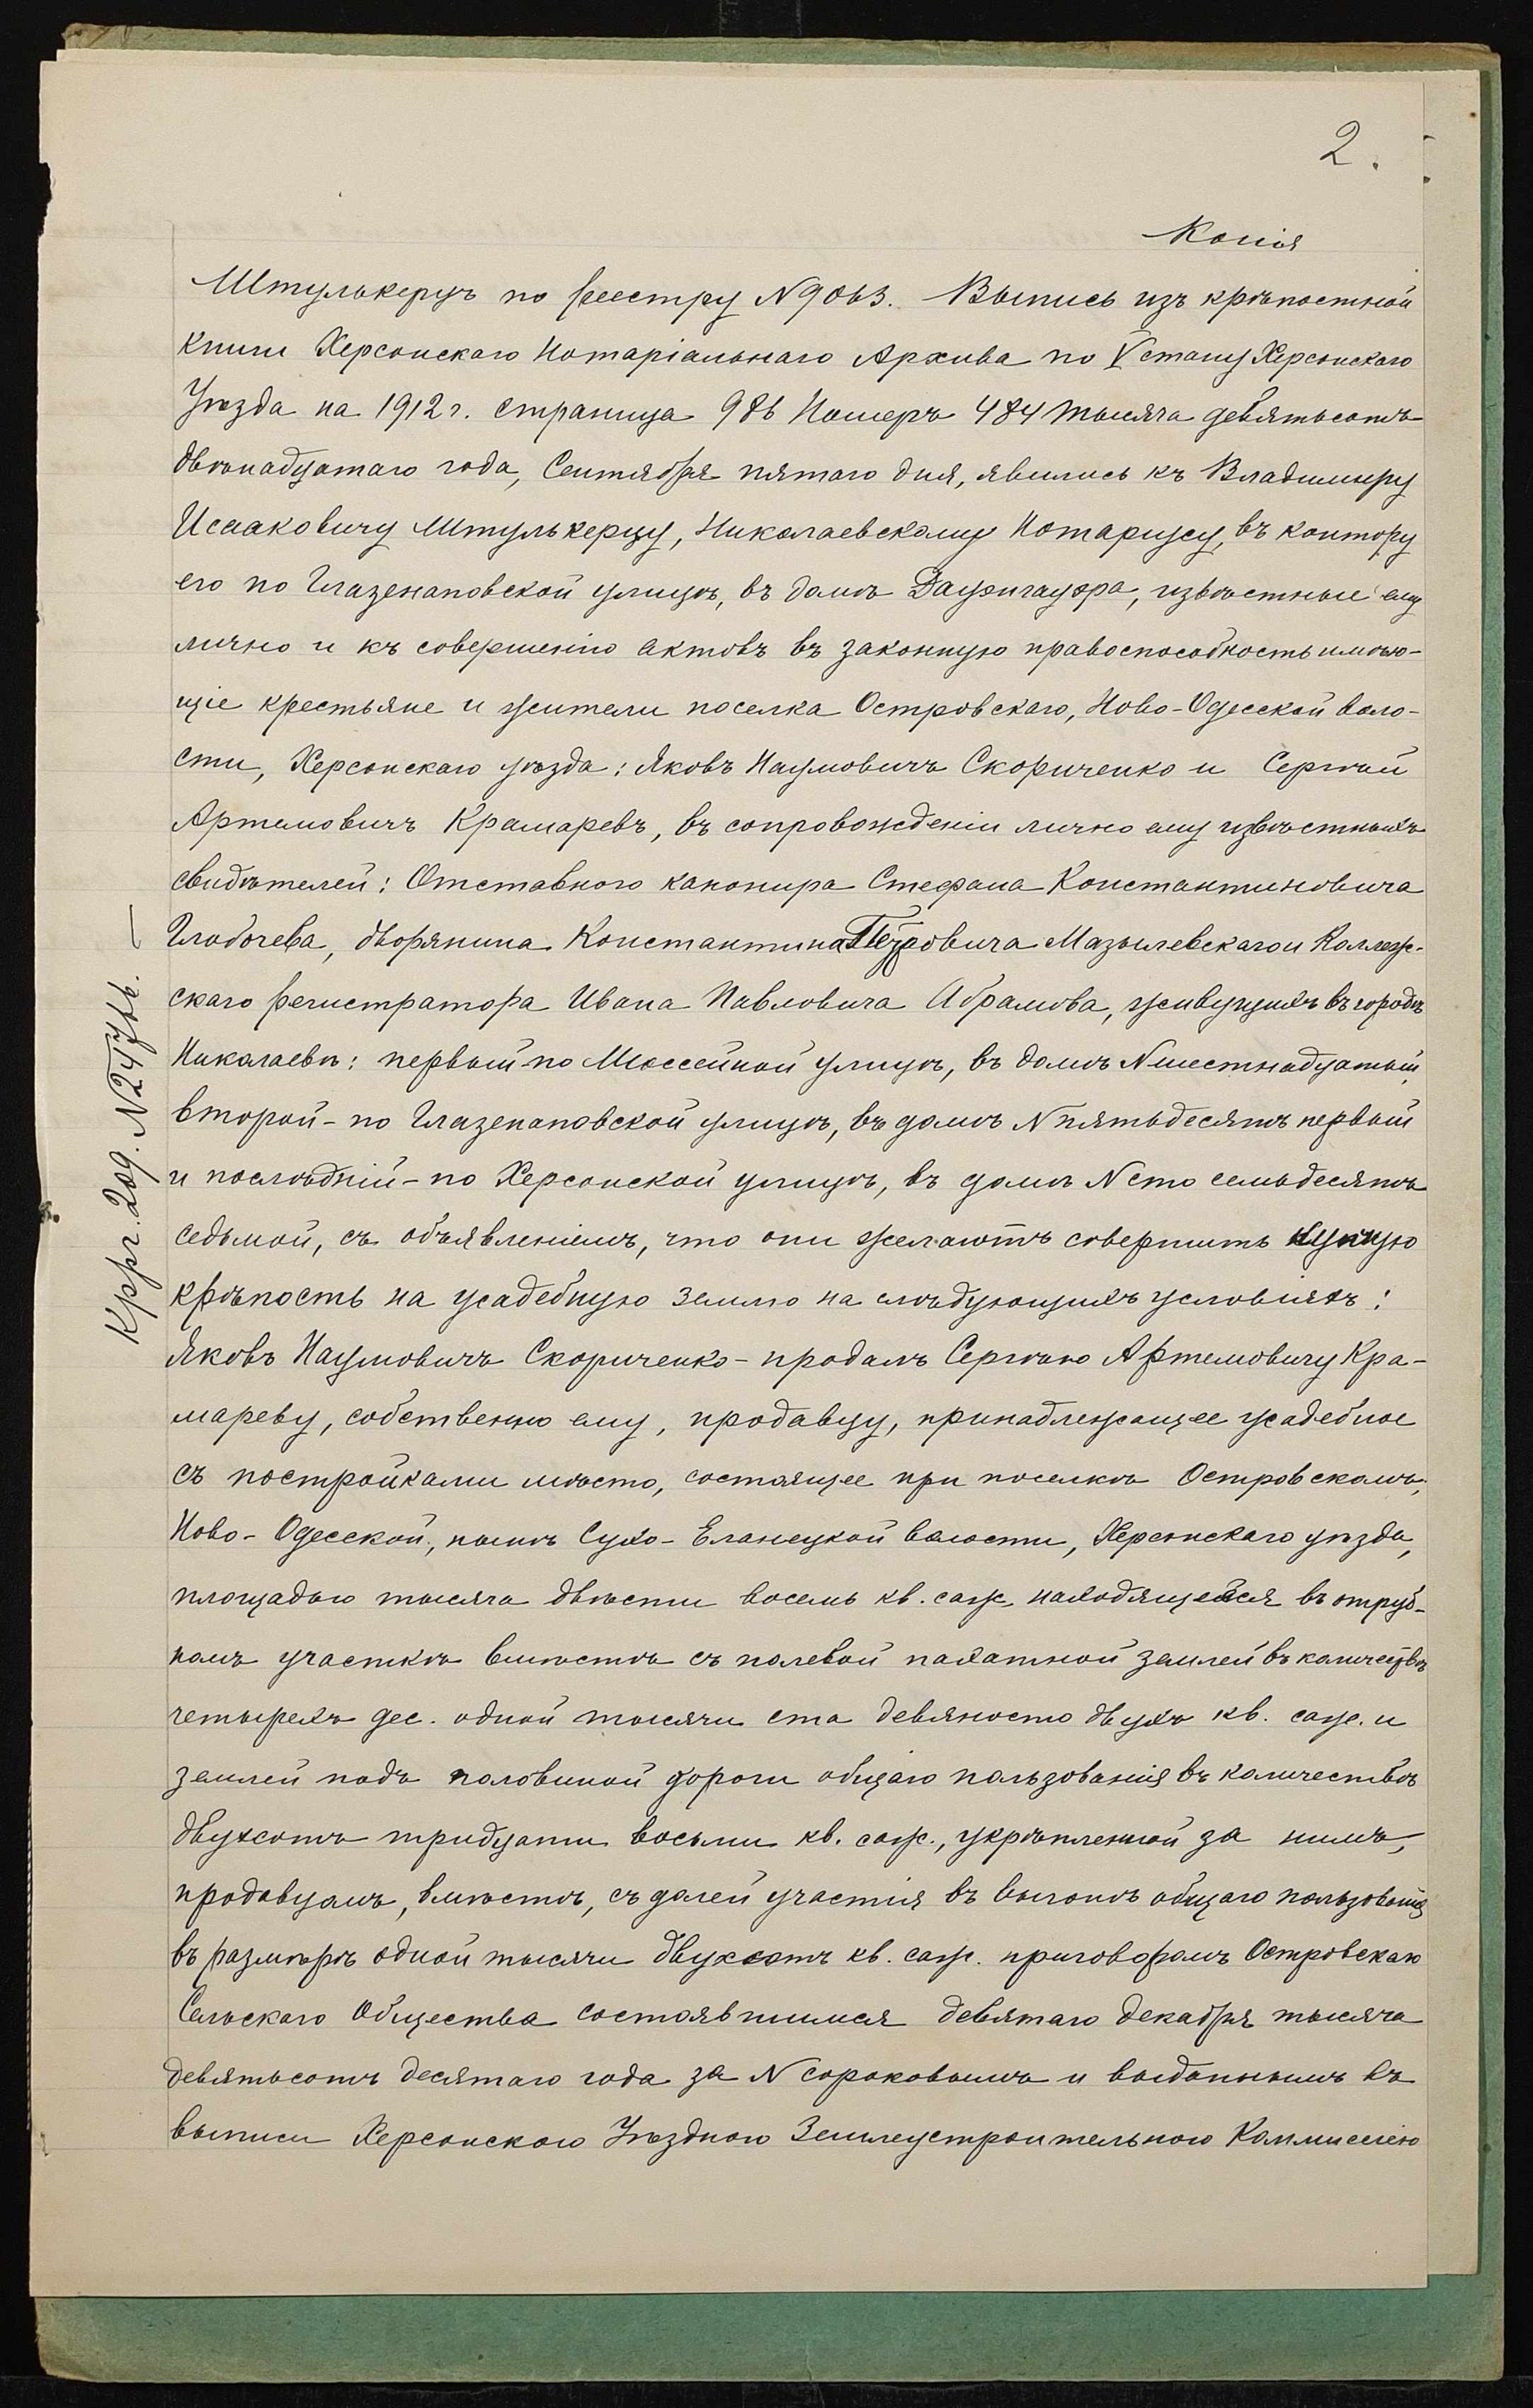 2.
Копія
Штулькерцъ по реестру N 9063. Выпись изъ крѣпостной
книги Херсонскаго Нотаріальнаго Архива по V стану Херсонскаго
Уѣзда на 1912 г. страница 986 Номеръ 484 Тысяча девятьсотъ
двѣнадцатаго года, Сентября пятаго дня, явились къ Владимиру
Исааковичу Штулькерцу, Николаевскому Нотаріусу, въ контору
его по Глазенаповской улицѣ, въ домѣ Дауфигауфа, извѣстные ему
лично и къ совершенію актовъ въ законную правоспособность имѣю-
щіе крестьяне и жители поселка Островскаго, Ново-Одесской воло-
сти, Херсонскаго уѣзда: Яковъ Наумовичъ Скориченко и Сергѣй
Артемовичъ Крамаревъ, въ сопровожденіи лично ему извѣстныхъ
свидѣтелей: Отставного канонира Стефана Константиновича
Глобочева, дворянина Константина Петровича Мазылевскаго и Коллеж-
скаго регистратора Ивана Павловича Абрамова, живущихъ въ городѣ
Николаевѣ: первый по Шоссейной улицѣ, въ домѣ N шестнадцатый,
второй - по Глазенаповской улицѣ, въ домѣ N пятьдесятъ первый
и послѣдній - по Херсонской улицѣ, въ домѣ N сто семьдесятъ
седьмой, съ объявленіемъ, что они желаютъ совершить купчую
крѣпость на усадебную землю на слѣдующихъ условіяхъ:
Яковъ Наумовичъ Скориченко - продалъ Сергѣю Артемовичу Кра-
мареву, собственно ему, продавцу, принадлежащее усадебное
съ постройками мѣсто, состоящее при поселкѣ Островскомъ,
Ново-Одесской, нынѣ Сухо-Еланецкой волости, Херсонскаго уѣзда,
площадью тысяча двѣсти восемь кв. саж. находящейся въ отруб-
номъ участкѣ вмѣстѣ съ полевой пахатной землей въ количествѣ
четырехъ дес. одной тысячи ста девяносто двухъ кв. саж. и
землей подъ половиной дороги общаго пользованія въ количествѣ
двухсотъ тридцати восьми кв. саж., укрѣпленной за нимъ,
продавцомъ, вмѣстѣ, съ долей участія въ выгонѣ общаго пользованія
въ размѣрѣ одной тысячи двухсотъ кв. саж. приговоромъ Островскаго
Сельскаго Общества состоявшимся девятаго декабря тысяча
девятьсотъ десятаго года за N сороковымъ и выданнымъ въ
выписи Херсонскою Уѣздною Землеустроительною Коммиссіею
Крр. 209. N 2476.